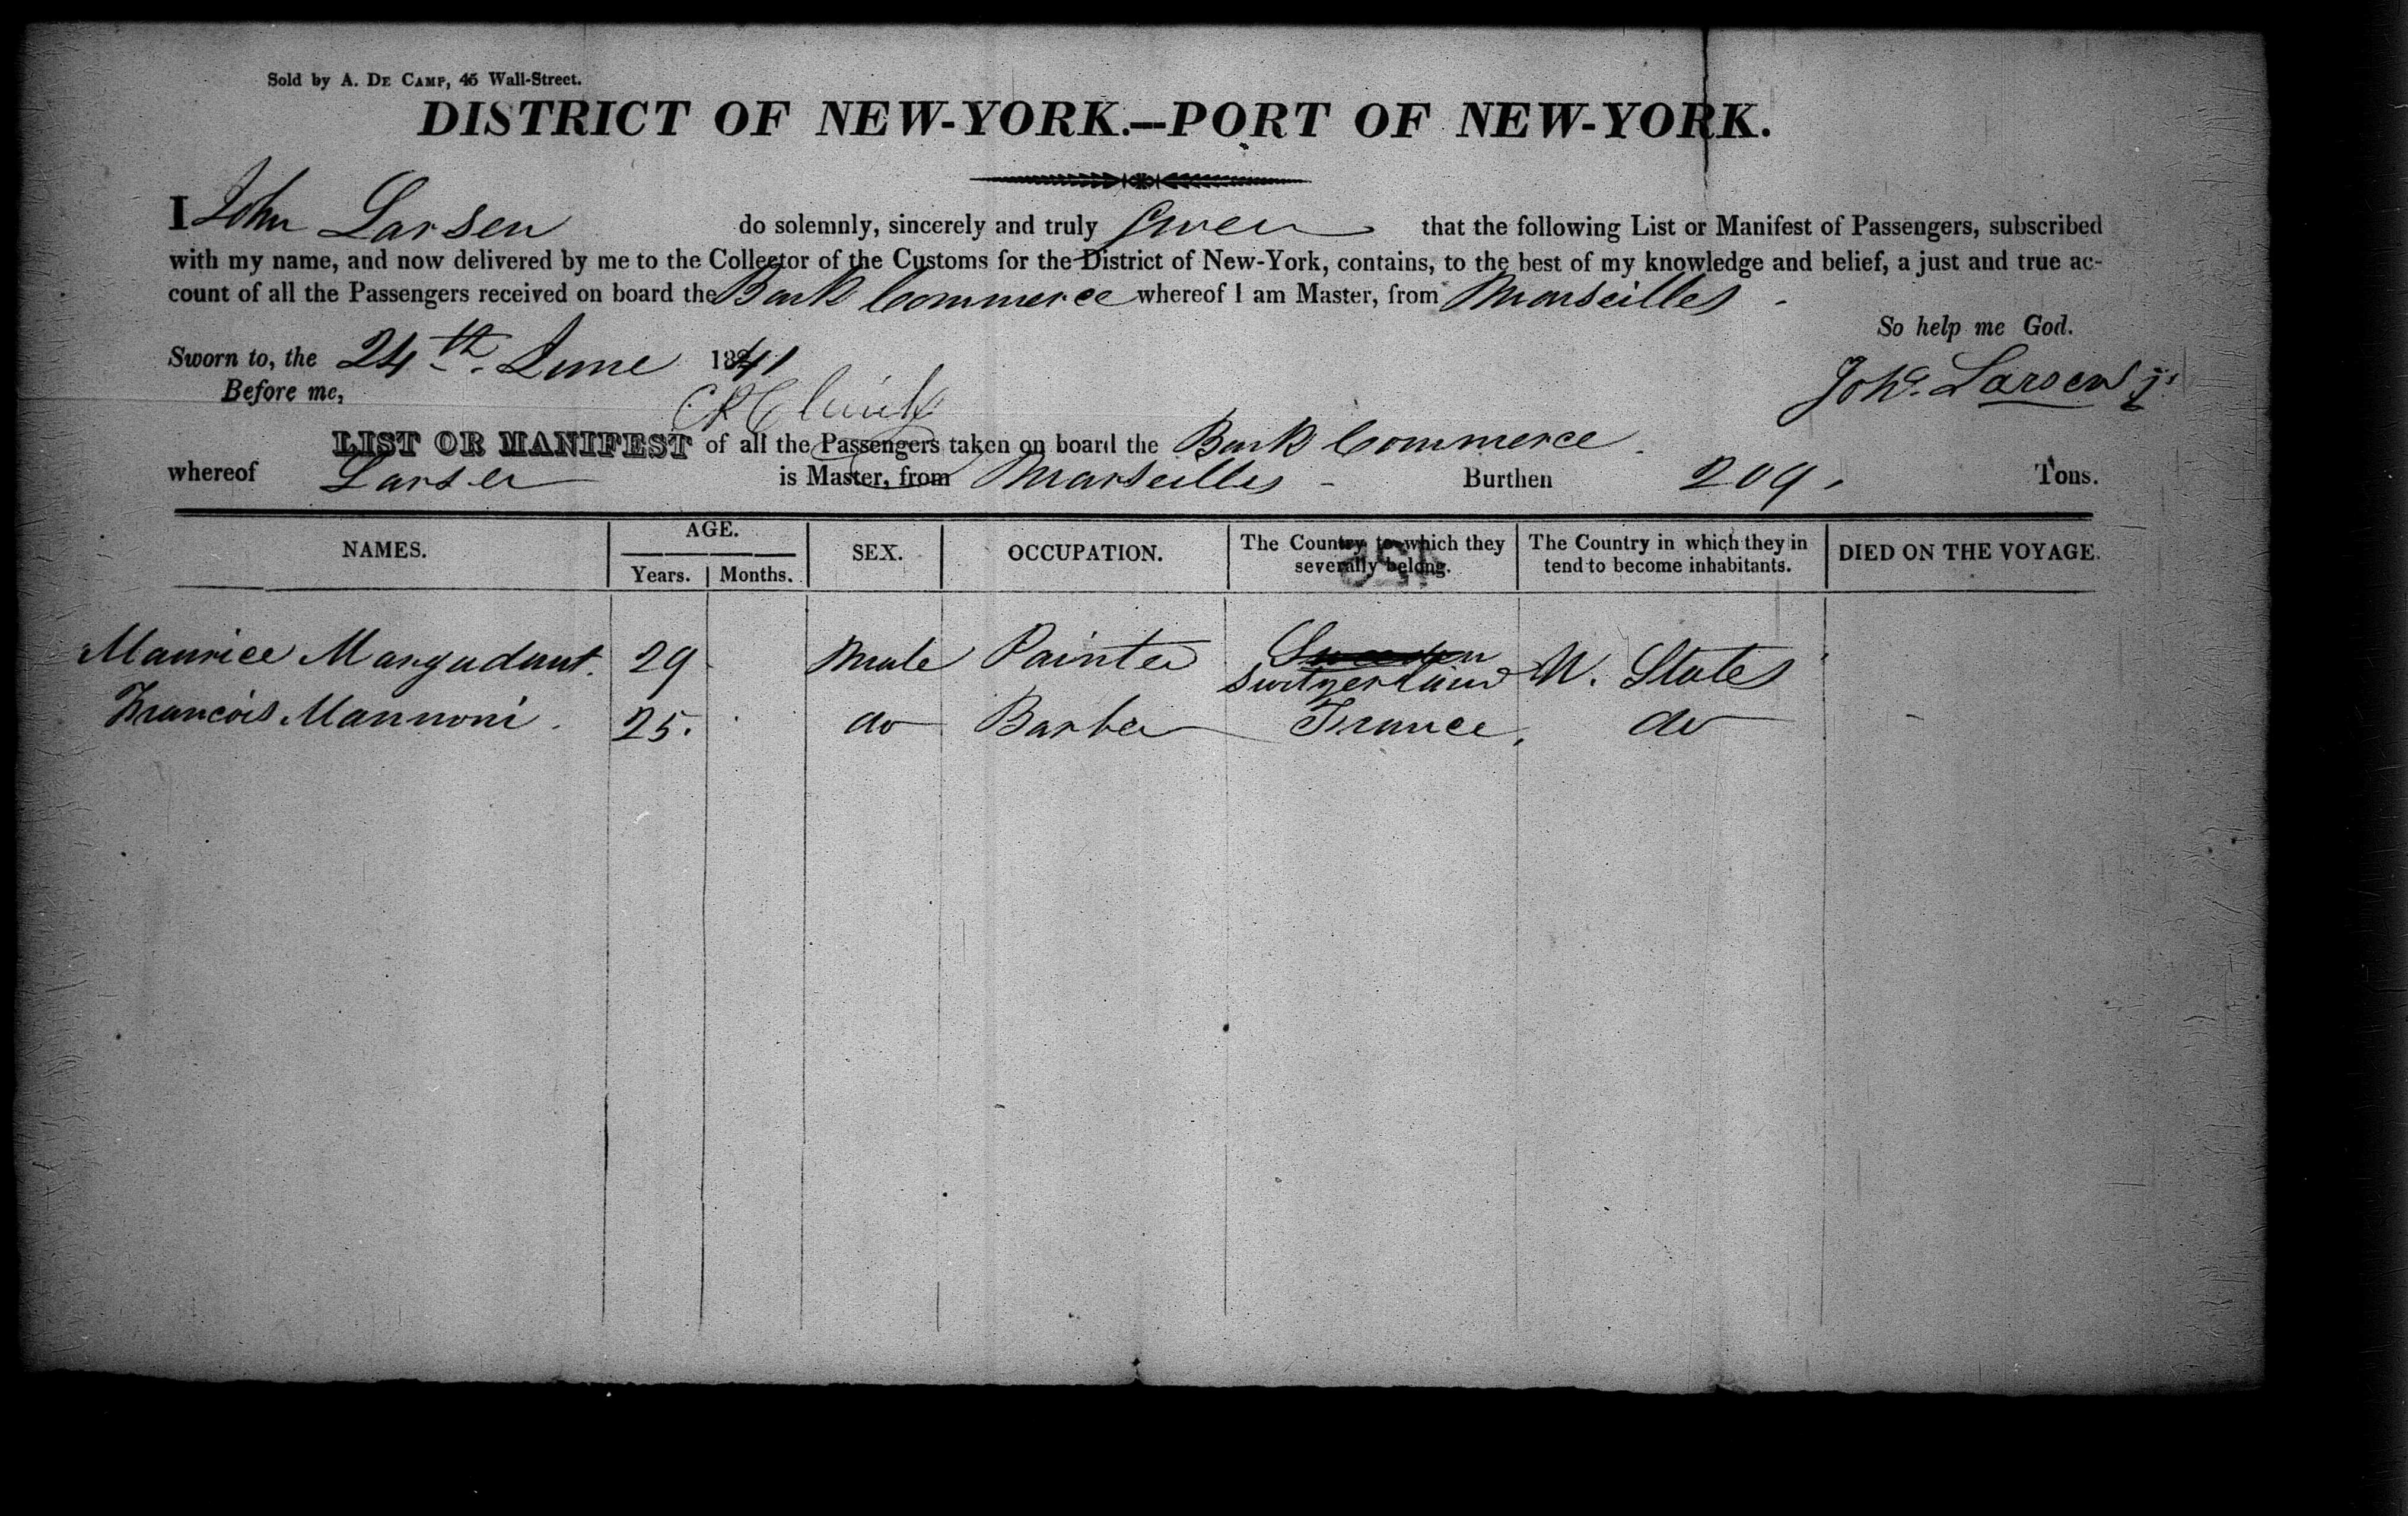 Sold by A. De Camp, 45 Wall-Street.
DISTRICT OF NEW-YORK.—PORT OF NEW-YORK.
I John Larsen do solemnly, sincerely and truly Swear that the following List or Manifest of Passengers, subscribed
with my name, and now delivered by me to the Collector of the Customs for the District of New-York, contains, to the best of my knowledge and belief, a just and true ac-
count of all the Passengers received on board the Bark Commerce whereof I am Master, from Marseilles
So help me God.
Sworn to, the 24th June 1841
Before me,
Larsen
LIST OR MANIFEST of all the Passengers taken on board the Bark Commerce
whereof Larsen is Master, from Marseilles Burthen 209 Tons.
NAMES. AGE. SEX. OCCUPATION. The Country to which they severally belong. The Country in which they in tend to become inhabitants. DIED ON THE VOYAGE.
Years. Months.
Maurice Margadant. 29 Male Painter Sweden Switzerland U. States
Francois Mannoni. 25. do Barber France, do